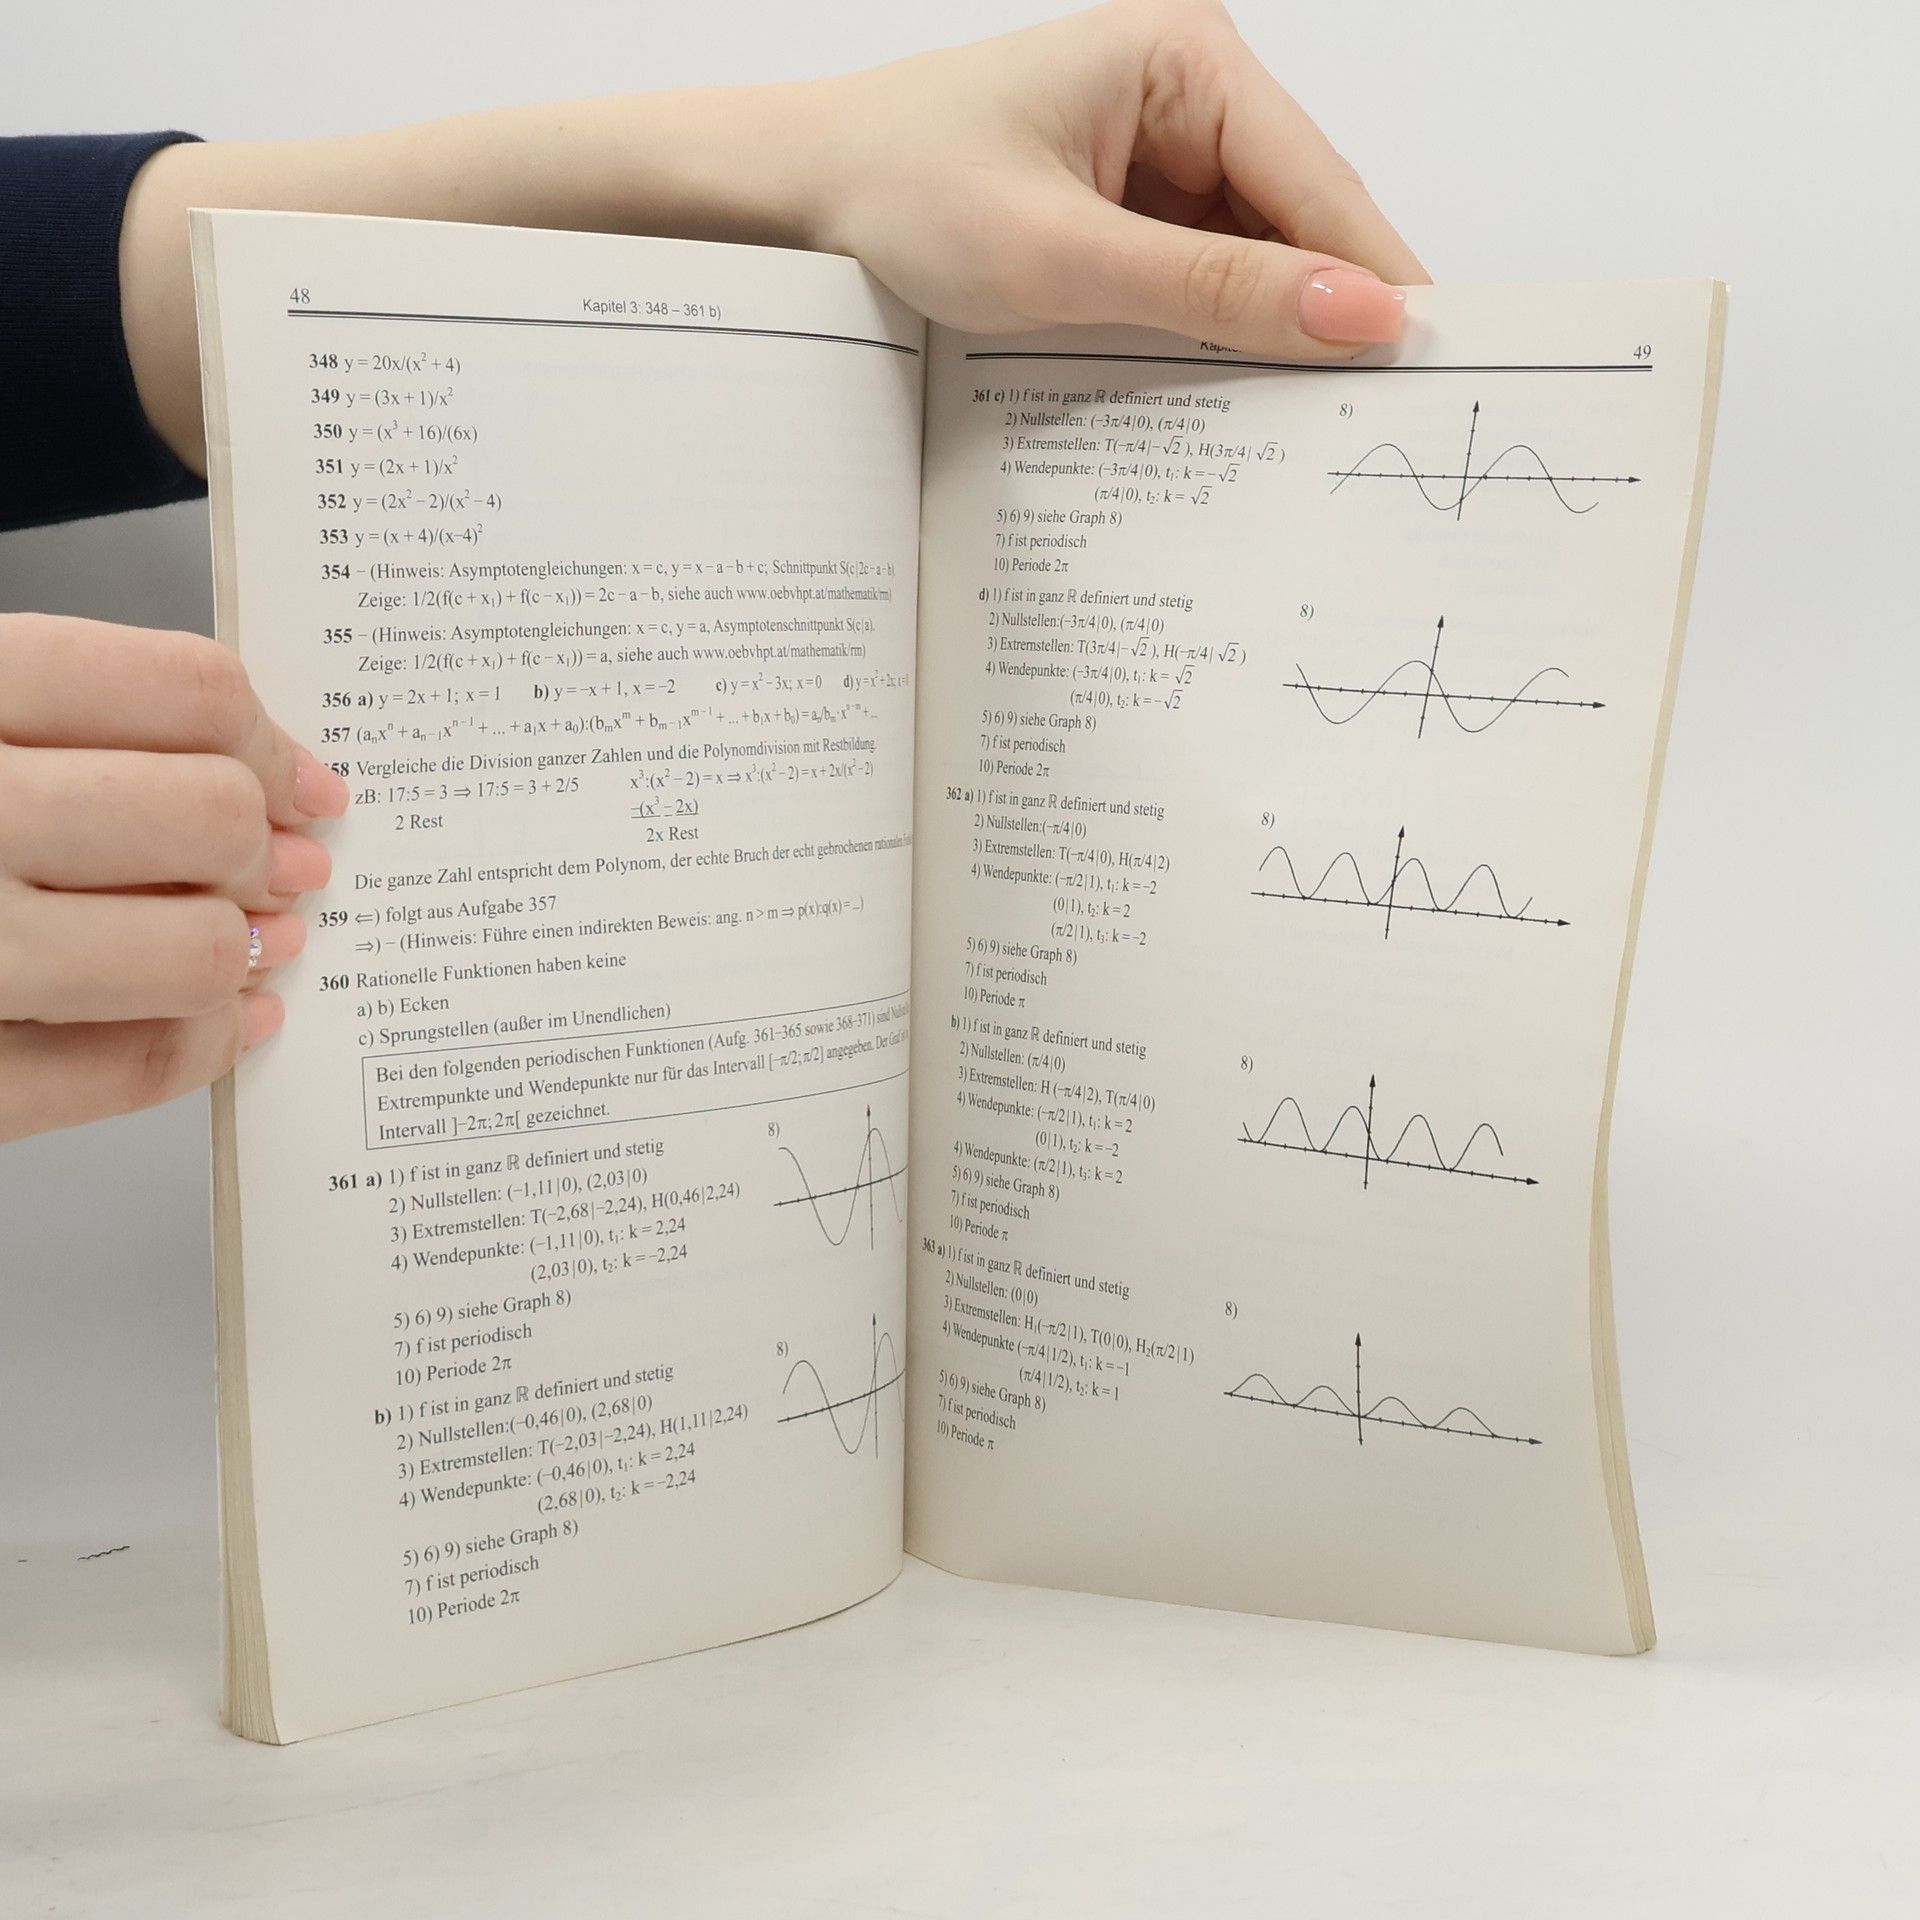 48
Kapitel 3: 348 – 361 b)
348 y = 20x/(x² + 4)
349 y = (3x + 1)/x²
350 y = (x³ + 16)/(6x)
351 y = (2x + 1)/x²
352 y = (2x² – 2)/(x² – 4)
353 y = (x + 4)/(x–4)²
354 – (Hinweis: Asymptotengleichungen: x = c, y = x – a – b + c; Schnittpunkt S(c|2c – a – b),
Zeige: 1/2(f(c + x₁) + f(c – x₁)) = 2c – a – b, siehe auch www.oebvhpt.at/mathematik/rm)
355 – (Hinweis: Asymptotengleichungen: x = c, y = a, Asymptotenschnittpunkt S(c|a).
Zeige: 1/2(f(c + x₁) + f(c – x₁)) = a, siehe auch www.oebvhpt.at/mathematik/rm)
356 a) y = 2x + 1; x = 1 b) y = –x + 1, x = –2 c) y = x² – 3x; x = 0 d) y = x² + 2x;
357 (aₙxⁿ + aₙ₋₁xⁿ⁻¹ + ... + a₁x + a₀):(bₘxᵐ + bₘ₋₁xᵐ⁻¹ + ... + b₁x + b₀) = aₙ/bₘ·xⁿ⁻ᵐ + ...
58 Vergleiche die Division ganzer Zahlen und die Polynomdivision mit Restbildung.
zB: 17:5 = 3 ⇒ 17:5 = 3 + 2/5 x³:(x² – 2) = x ⇒ x³:(x² – 2) = x + 2x/(x² – 2)
–(x³ – 2x)
2 Rest 2x Rest
Die ganze Zahl entspricht dem Polynom, der echte Bruch der echt gebrochenen rationalen
359 ⇐) folgt aus Aufgabe 357
⇒) – (Hinweis: Führe einen indirekten Beweis: ang. n > m ⇒ p(x):q(x) = ...)
360 Rationelle Funktionen haben keine
a) b) Ecken
c) Sprungstellen (außer im Unendlichen)
Bei den folgenden periodischen Funktionen (Aufg. 361–365 sowie 368–371) sind
Extrempunkte und Wendepunkte nur für das Intervall [–π/2; π/2] angegeben. Der Graf
Intervall ]–2π; 2π[ gezeichnet.
361 a) 1) f ist in ganz ℝ definiert und stetig 8)
2) Nullstellen: (–1,11|0), (2,03|0)
3) Extremstellen: T(–2,68|–2,24), H(0,46|2,24)
4) Wendepunkte: (–1,11|0), t₁: k = 2,24
(2,03|0), t₂: k = –2,24
5) 6) 9) siehe Graph 8)
7) f ist periodisch
10) Periode 2π
b) 1) f ist in ganz ℝ definiert und stetig 8)
2) Nullstellen:(–0,46|0), (2,68|0)
3) Extremstellen: T(–2,03|–2,24), H(1,11|2,24)
4) Wendepunkte: (–0,46|0), t₁: k = 2,24
(2,68|0), t₂: k = –2,24
5) 6) 9) siehe Graph 8)
7) f ist periodisch
10) Periode 2π
49
361 c) 1) f ist in ganz ℝ definiert und stetig 8)
2) Nullstellen: (–3π/4|0), (π/4|0)
3) Extremstellen: T(–π/4|–√2 ), H(3π/4| √2 )
4) Wendepunkte: (–3π/4|0), t₁: k = –√2
(π/4|0), t₂: k = √2
5) 6) 9) siehe Graph 8)
7) f ist periodisch
10) Periode 2π
d) 1) f ist in ganz ℝ definiert und stetig 8)
2) Nullstellen:(–3π/4|0), (π/4|0)
3) Extremstellen: T(3π/4|–√2 ), H(–π/4| √2 )
4) Wendepunkte: (–3π/4|0), t₁: k = √2
(π/4|0), t₂: k = –√2
5) 6) 9) siehe Graph 8)
7) f ist periodisch
10) Periode 2π
362 a) 1) f ist in ganz ℝ definiert und stetig 8)
2) Nullstellen:(–π/4|0)
3) Extremstellen: T(–π/4|0), H(π/4|2)
4) Wendepunkte: (–π/2|1), t₁: k = –2
(0|1), t₂: k = 2
(π/2|1), t₃: k = –2
5) 6) 9) siehe Graph 8)
7) f ist periodisch
10) Periode π
b) 1) f ist in ganz ℝ definiert und stetig 8)
2) Nullstellen: (π/4|0)
3) Extremstellen: H (–π/4|2), T(π/4|0)
4) Wendepunkte: (–π/2|1), t₁: k = 2
(0|1), t₂: k = –2
4) Wendepunkte: (π/2|1), t₃: k = 2
5) 6) 9) siehe Graph 8)
7) f ist periodisch
10) Periode π
363 a) 1) f ist in ganz ℝ definiert und stetig 8)
2) Nullstellen: (0|0)
3) Extremstellen: H₁(–π/2|1), T(0|0), H₂(π/2|1)
4) Wendepunkte (–π/4|1/2), t₁: k = –1
(π/4|1/2), t₂: k = 1
5) 6) 9) siehe Graph 8)
7) f ist periodisch
10) Periode π